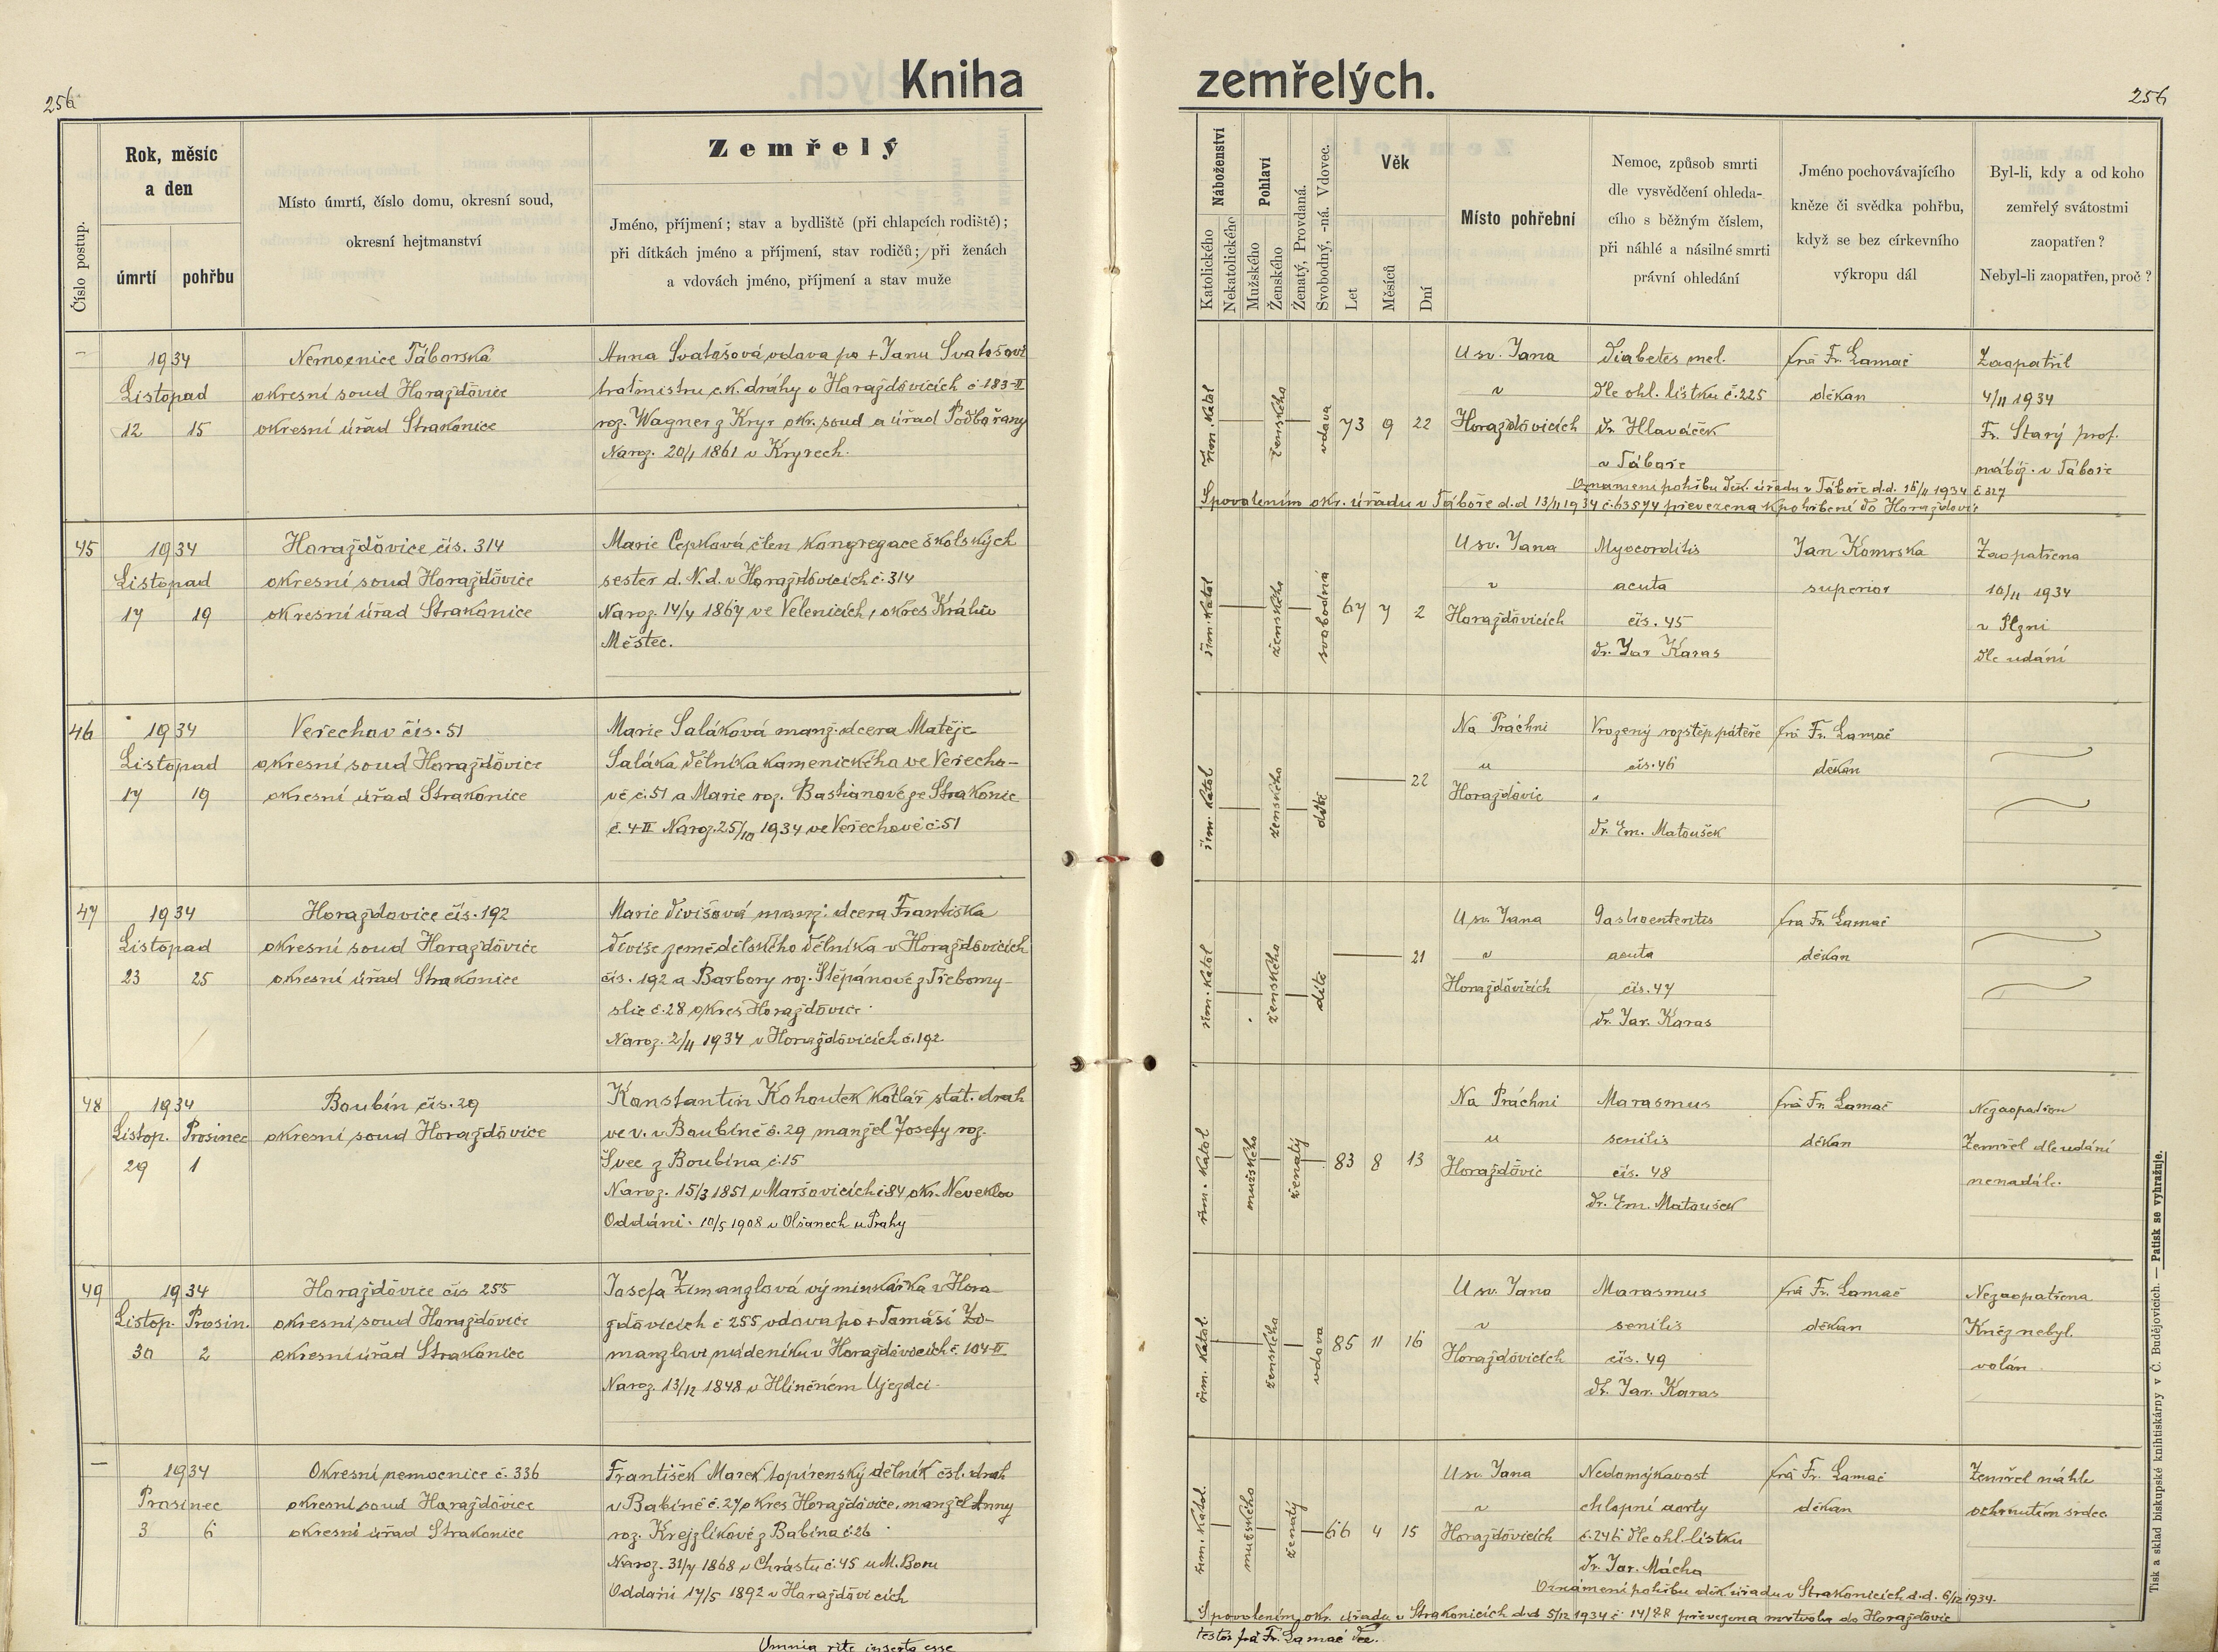 256
Kniha zemřelých.
256
Číslo postup.
Rok, měsíc
a den
úmrtí
pohřbu
Místo úmrtí, číslo domu, okresní soud,
okresní hejtmanství
Zemřelý
Jméno, příjmení; stav a bydliště (při chlapcích rodiště);
při dítkách jméno a příjmení, stav rodičů; při ženách
a vdovách jméno, příjmení a stav muže
Náboženství
Katolického
Nekatolického
Pohlaví
Mužského
Ženského
Ženatý, Provdaná.
Svobodný, -ná. Vdovec.
Věk
Let
Měsíců
Dní
Místo pohřební
Nemoc, způsob smrti
dle vysvědčení ohleda-
cího s běžným číslem,
při náhlé a násilné smrti
právní ohledání
Jméno pochovávajícího
kněze či svědka pohřbu,
když se bez církevního
výkropu dál
Byl-li, kdy a od koho
zemřelý svátostmi
zaopatřen?
Nebyl-li zaopatřen, proč?
–
1934
Listopad
12 15
Nemocnice Táborská
okresní soud Horažďovice
okresní úřad Strakonice
Anna Svatošová vdova po + Janu Svatošovi
traťmistru c.k. dráhy v Horažďovicích č. 183-II
roz. Wagner z Kryr okr. soud a úřad Podbořany
Naroz. 20/1 1861 v Kryrech.
řím. katol
ženského
vdova
73 9 22
U sv. Jana
v
Horažďovicích
Diabetes mel.
dle ohl. lístku č. 225
Dr Hlaváček
v Táboře
frá Fr. Lamač
děkan
Zaopatřil
4/11 1934
Fr. Starý prof.
nábož. v Táboře
Oznámení pohřbu děk. úřadu v Táboře d.d. 15/11 1934 č 827
S povolením okr. úřadu v Táboře d.d 13/11 1934 č. 63574 převezena k pohřbení do Horažďovic
45
1934
Listopad
17 19
Horažďovice čís. 314
okresní soud Horažďovice
okresní úřad Strakonice
Marie Cepková člen kongregace školských
sester d. N. d. v Horažďovicích č. 314
Naroz. 14/4 1867 ve Velenicích, okres Králův
Městec.
řím. katol
ženského
svobodná
67 7 2
U sv. Jana
v
Horažďovicích
Myocorditis
acuta
čís. 45
Dr. Jar Karas
Jan Komrska
superior
Zaopatřena
10/11 1934
v Plzni
dle udání
46
1934
Listopad
17 19
Veřechov čís. 51
okresní soud Horažďovice
okresní úřad Strakonice
Marie Saláková manž. dcera Matěje
Saláka dělníka kamenického ve Veřecho-
vě č. 51 a Marie roz. Bastianové ze Strakonic
č. 4-II Naroz. 25/10 1934 ve Veřechově č 51
řím. katol
ženského
dítě
22
Na Práchni
u
Horažďovic
Vrozený rozštěp páteře
čís. 46
Dr. Em. Matoušek
frá Fr. Lamač
děkan
47
1934
Listopad
23 25
Horažďovice čís. 192
okresní soud Horažďovice
okresní úřad Strakonice
Marie Divišová manž. dcera Františka
Diviše zemědělského dělníka v Horažďovicích
čís. 192 a Barbory roz. Štěpánové z Třebomy-
slic č. 28 okres Horažďovice.
Naroz. 2/11 1934 v Horažďovicích č. 192
řím. katol
ženského
dítě
21
U sv. Jana
v
Horažďovicích
Gastroenteritis
acuta
čís. 47
Dr. Jar. Karas
frá Fr. Lamač
děkan
48
1934
Listop. Prosinec
29 1
Boubín čís. 29
okresní soud Horažďovice
Konstantin Kohoutek kotlář stát. drah
ve v. v Boubíně č. 29 manžel Josefy roz.
Švec z Boubína č. 15
Naroz. 15/3 1851 v Maršovicích č 84 okr. Neveklov
Oddáni. 10/5 1908 v Olšanech u Prahy
řím. katol
mužského
ženatý
83 8 13
Na Práchni
u
Horažďovic
Marasmus
senilis
čís. 48
Dr. Em. Matoušek
frá Fr. Lamač
děkan
Nezaopatřen
Zemřel dle udání
nenadále.
49
1934
Listop. Prosin.
30 2
Horažďovice čís 255
okresní soud Horažďovice
okresní úřad Strakonice
Josefa Zemanzlová výminkářka v Hora-
žďovicích č 255 vdova po + Tomáši Ze-
manzlovi nádeníku v Horažďovicích č. 104-II
Naroz. 13/12 1848 v Hliněném Újezdci.
řím. katol.
ženského
vdova
85 11 16
U sv. Jana
v
Horažďovicích
Marasmus
senilis
čís. 49
Dr. Jar. Karas
frá Fr. Lamač
děkan
Nezaopatřena
Kněz nebyl.
volán.
–
1934
Prosinec
3 6
Okresní nemocnice č. 336
okresní soud Horažďovice
okresní úřad Strakonice
František Marek topírenský dělník čsl. drah
v Babíně č. 27 okres Horažďovice, manžel Anny
roz. Krejzlíkové z Babína č. 26
Naroz. 31/7 1868 v Chrástu č. 45 u M. Boru
Oddáni 17/5 1892 v Horažďovicích
řím. katol.
mužského
ženatý
66 4 15
U sv. Jana
v
Horažďovicích
Nedomýkavost
chlopní aorty
č. 246 dle ohl. lístku
Dr. Jar. Mácha
frá Fr. Lamač
děkan
Zemřel náhle
ochrnutím srdce
Oznámení pohřbu děk. úřadu v Strakonicích d.d. 6/12 1934.
S povolením okr. úřadu v Strakonicích d.d 5/12 1934 č. převezena mrtvola do Horažďovic
testor frá Fr. Lamač děk.
Omnia rite inserta esse
Tisk a sklad biskupské knihtiskárny v Č. Budějovicích. — Patisk se vyhražuje.